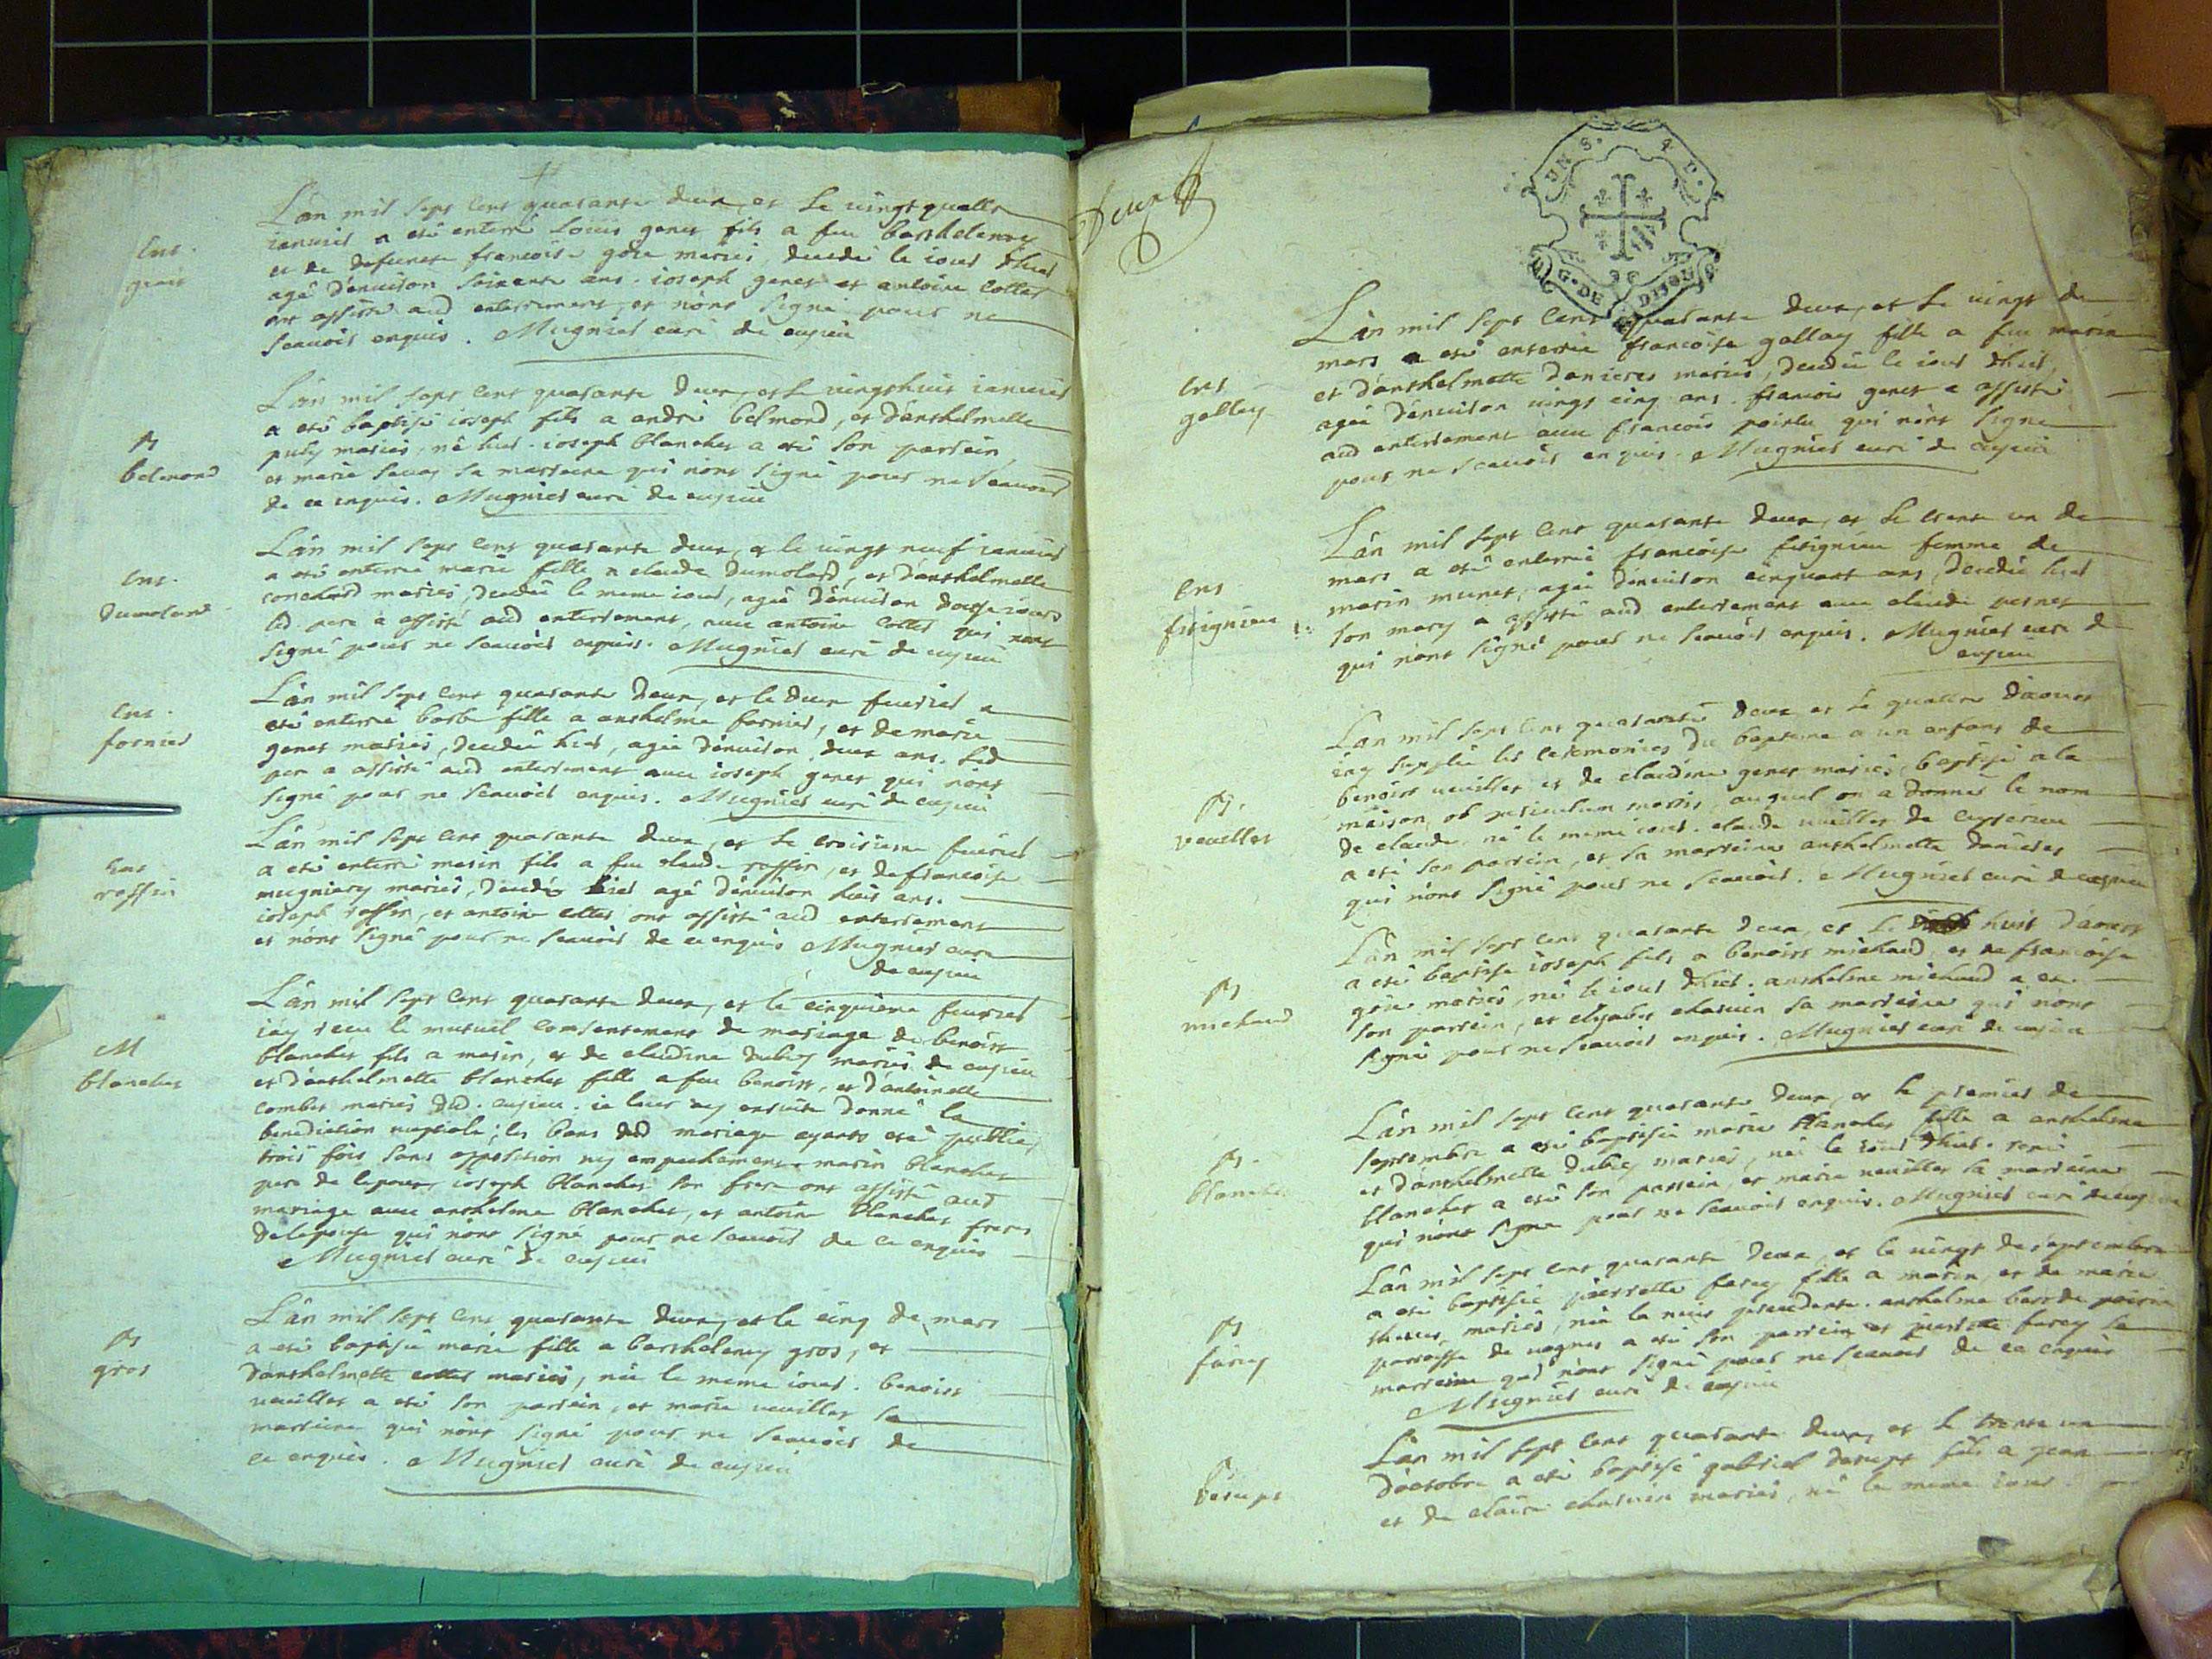 Lan mil sept cent quarante deux, et le vingt quatre
ianvier a eté enterré Louis genet fils a feu barthelemy
et de defuncte francoise goie mariés, decedé le iour d'hier
agé d'environ soixante ans. ioseph genet et antoine collet
ont assisté aud enterrement, et n'ont signé pour ne
scavoir enquis. Mugnier curé de cuzieu
Ent.
genet
Lan mil sept cent quarante deux, et le vingthuit ianvier
a eté baptisé ioseph fils a andré belmond, et d'anthelmette
puty mariés, né hier. ioseph blanchet a eté son parrein
et marie sa marreine qui n'ont signé pour ne scavoir
de ce enquis. Mugnier curé de cuzieu
B
belmond
Lan mil sept cent quarante deux, et le vingt neuf ianvier
a eté enterrée marie fille a claude Dumolard, et d'anthelmette
mariés, decedée le meme iour, agée d'environ douze iours
led. pere a assisté aud enterrement, avec antoine collet qui n'ont
signé pour ne scavoir enquis. Mugnier curé de cuzieu
Ent.
Dumolard
Lan mil sept cent quarante deux, et le deux fevrier a
eté enterrée barbe fille a anthelme fornier, et de marie
genet mariés, decedée hier, agée d'environ deux ans. led
pere a assisté aud enterrement avec ioseph genet qui n'ont
signé pour ne scavoir enquis. Mugnier curé de cuzieu
Ent.
fornier
Lan mil sept cent quarante deux, et le troisieme fevrier
a eté enterré marin fils a feu claude roffin, et de francoise
mugniery mariés, decedé hier agé d'environ huit ans.
ioseph roffin, et antoine collet ont assisté aud enterrement
et n'ont signé pour ne scavoir de ce enquis Mugnier curé
de cuzieu
Ent
roffin
Lan mil sept cent quarante deux, et le cinquieme fevrier
i'ay receu le mutuel consentement de mariage de benoist
blanchet fils a marin, et de claudine dubey mariés de cuzieu
et d'anthelmette blanchet fille a feu benoist, et d'antoinette
combet mariés dud. cuzieu. ie leur ay ensuite donné la
benediction nuptiale; les bans dud mariage ayants eté publiés
trois fois sans opposition ny empechement. marin blanchet
pere de lepoux, ioseph blanchet son frere ont assisté aud
mariage avec anthelme blanchet, et antoine blanchet freres
de lepouse qui n'ont signé pour ne scavoir de ce enquis
Mugnier curé de cuzieu
M
blanchet
Lan mil sept cent quarante deux, et le cinq de mars
a eté baptisée marie fille a barthelemy gros, et
d'anthelmette collet mariés, née le meme iour. benoist
veuillet a eté son parrein, et marie veuillet sa
marreine qui n'ont signé pour ne scavoir de
ce enquis. Mugnier curé de cuzieu
B
gros
Deux
UN S. 4 D.
G. DE DIJON
Lan mil sept cent quarante deux, et le vingt de
mars a eté enterrée francoise gallay fille a feu marin
et d'anthelmette danieres mariés, decedée le iour d'hier,
agée d'environ vingt cinq ans. francois genet a assisté
aud enterrement avec francois pointu qui n'ont signé
pour ne scavoir enquis. Mugnier curé de cuzieu
Ent
gallay
Lan mil sept cent quarante deux, et le trente un de
mars a eté enterrée francoise fitignieu femme de
marin munet, agée d'environ cinquante ans, decedée hier
son mary a assisté aud enterrement avec claude pernet
qui n'ont signé pour ne scavoir enquis. Mugnier curé de
cuzieu
Ent
fitignieu
Lan mil sept cent quarante deux et le quattre d'aoust
i'ay supplée les ceremonies du bapteme a un enfant de
benoist veuillet et de claudine genet mariés, baptisé a la
maison, ob periculum mortis, auquel on a donné le nom
de claude, né le meme iour. claude veuillet de ceyzerieu
a eté son parrein, et sa marreine anthelmette danieres
qui n'ont signé pour ne scavoir. Mugnier curé de cuzieu
B.
veuillet
Lan mil sept cent quarante deux, et le huit d'aoust
a eté baptisé ioseph fils a benoist michaud, et de francoise
goie mariés, né le iour d'hier. anthelme michaud a eté
son parrein, et elizabet chauvin sa marreine qui n'ont
signé pour ne scavoir enquis. Mugnier curé de cuzieu
B
michaud
Lan mil sept cent quarante deux, et le premier de
septembre a eté baptisée marie blanchet fille a anthelme
et d'anthelmette dubey mariés, née le iour d'hier. rené
blanchet a eté son parrein, et marie veuillet sa marreine
qui n'ont signé pour ne scavoir enquis. Mugnier curé de cuzieu
B.
blanchet
Lan mil sept cent quarante deux, et le vingt de septembre
a eté baptisée pierrette farcy fille a marin, et de marie
mariés, née la nuit precedente. anthelme
parroisse de vognes a eté son parrein et pierrette farcy sa
marreine qui n'ont signé pour ne scavoir de ce enquis
Mugnier curé de cuzieu
B
farcy
Lan mil sept cent quarante deux, et le trente un
d'octobre a eté baptisé gabriel derupt fils a jean
et de claire chauvin mariés, né le meme iour.
B
derupt